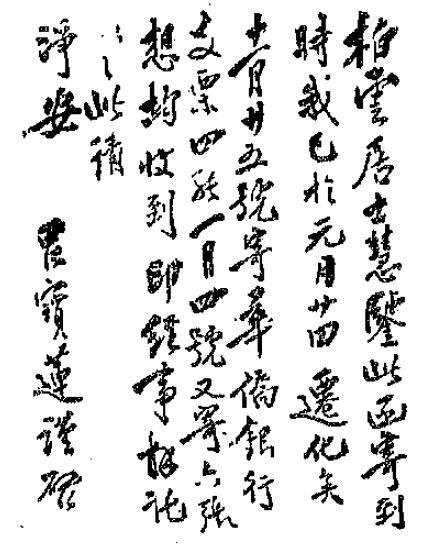 柏雲居士慧鑒此函寄到
時我已於元月廿四遷化矣
十一月廿五號寄華僑銀行
支票四張一月四號又寄六張
想均收到即諸事拜託
〻〻此請
淨安 寶蓮謹啓